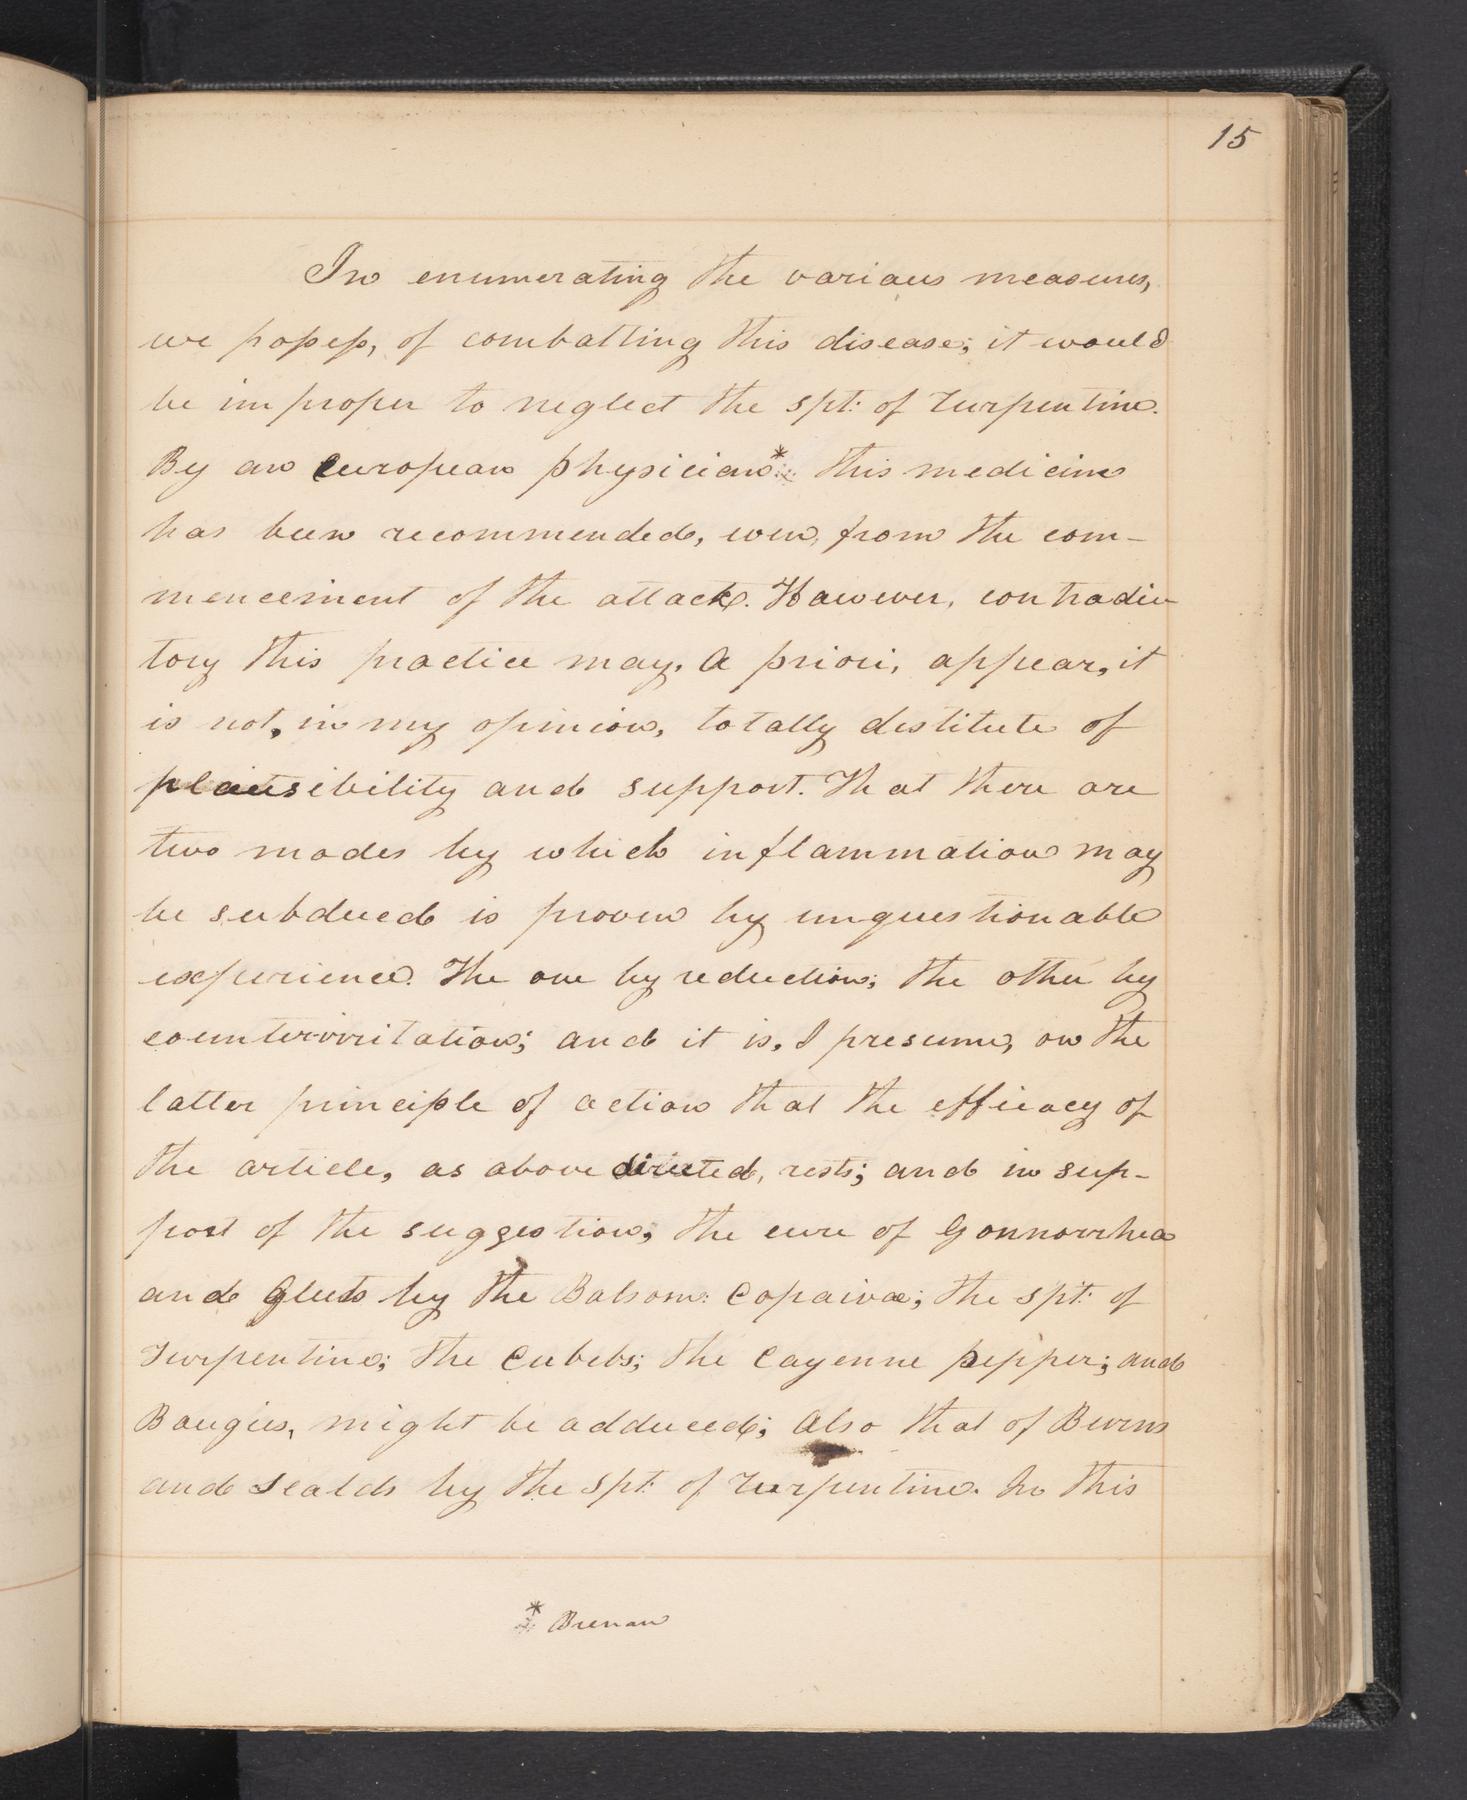 15
In enumerating the various measures,
we possess, of combatting this disease; it would
be improper to neglect the spt: of Turpentine.
By an European physician* this medicine
has been recommended, even, from the com-
mencement of the attack. However, contradic
tory this practice may, a priori, appear, it
is not, in my opinion, totally destitute of
plausibility and support. That there are
two modes by which inflammation may
be subdued is proven by unquestionable
experience. The one by reduction; the other by
counterirritation; and it is, I presume, on the
latter principle of action that the efficacy of
the article, as above directed, rests; and in sup-
port of the suggestion, the cure of Gonnorrhea
and Gleets by the Balsom: Copaivae; the spt: of
Turpentine; the Cubebs; the Cayenne pepper; and
Bougies, might be adduced; also that of Burns
and Scalds by the spt: of Turpentine. In this
* Brenan